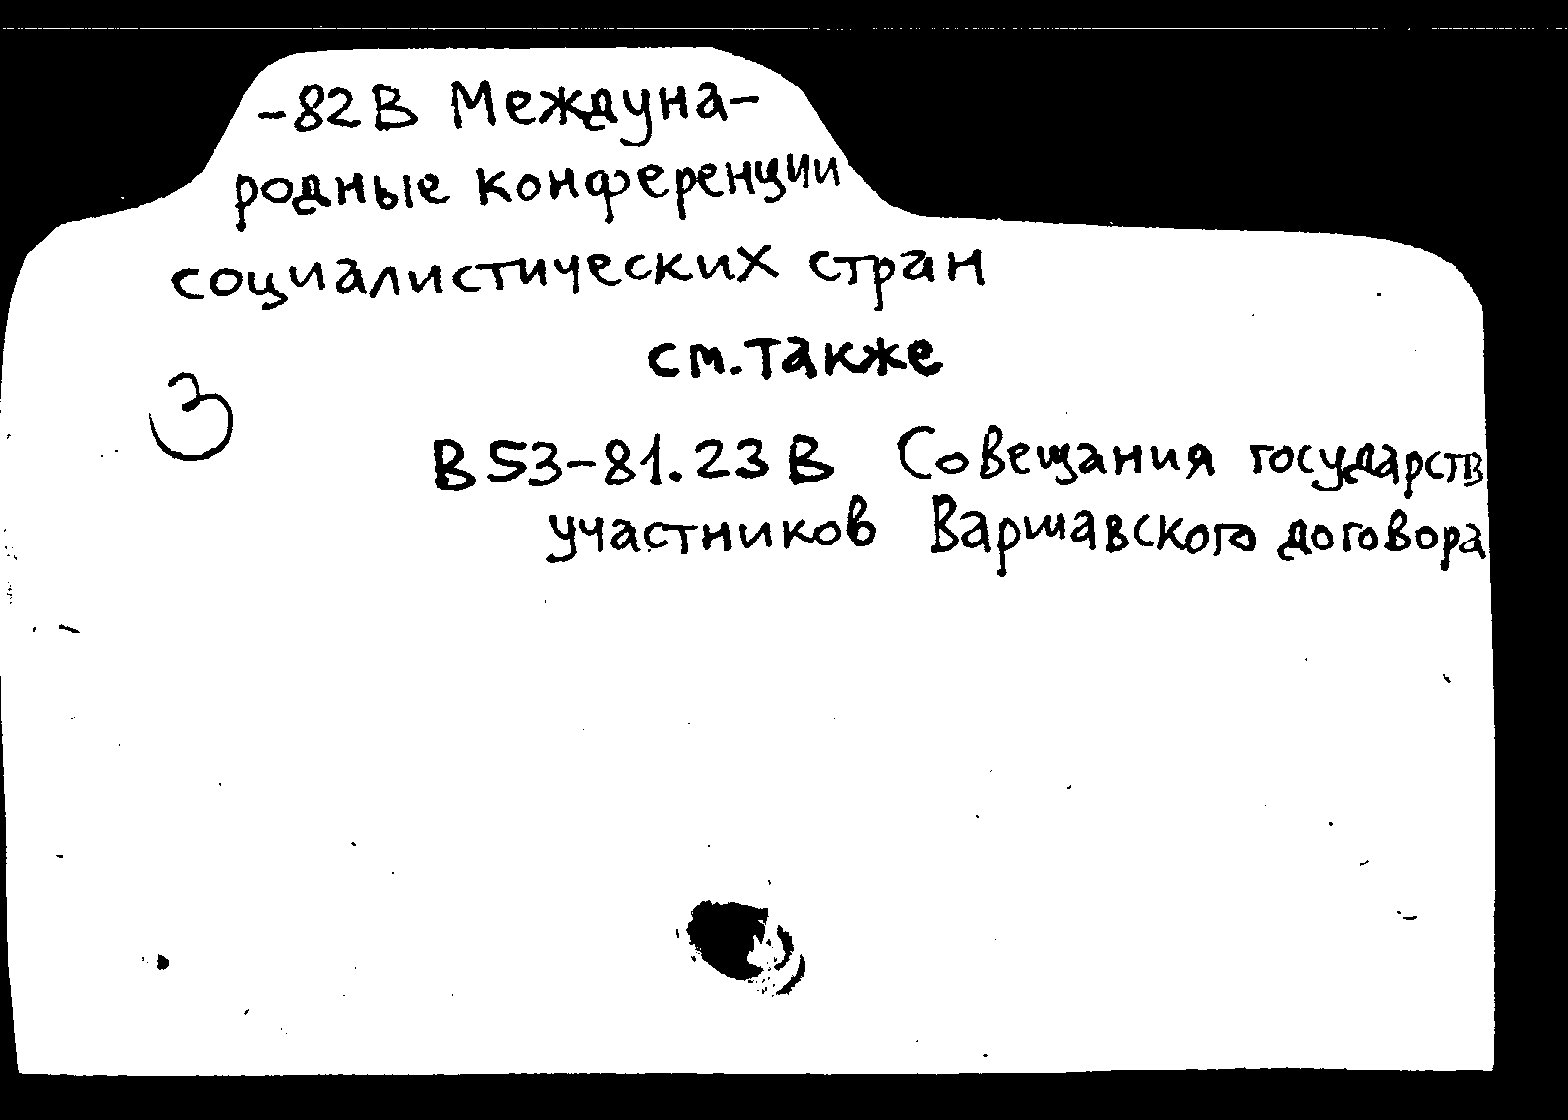 -82В Междуна-
родные конференции
социалистических стран
см. также
3
В53-81.23В Совещания государств
участников Варшавского договора